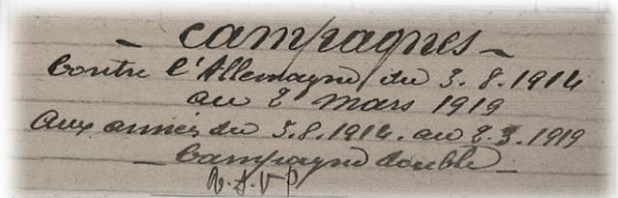 - Campagnes -
Contre l'Allemagne du 3.8.1914
au 2 mars 1919
Aux armées du 3.8.1914. au 2.3.1919
- Campagne double -